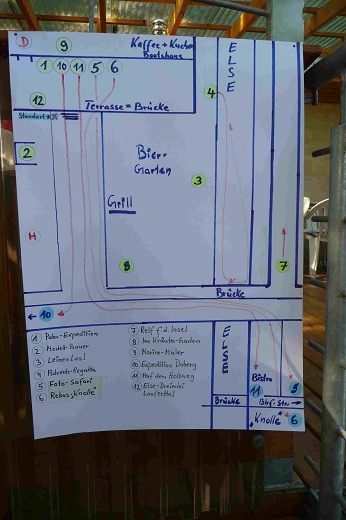 D
9
Kaffee + Kuchen
Bootshaus
1 10 11 5 6
12
Terrasse = Brücke
Standort x
2
ELSE
4
Bier-
Garten
3
Grill
H
8
7
Brücke
← 10
1 Polar-Expedition
2 Modell-Bauer
3 Leinen Los!
4 Advents-Regatta
5 Foto-Safari
6 Rebus „Knolle"
7 Relf i. d. Insel
8 Im Kräuter-Garten
9 Marine-Maler
10 Expedition Doberg
11 Auf dem Holzweg
12 Else-Dreierlei
Laufzettel
ELSE
Bistro
11
5
Brücke
Bhf-Str. →
„Knolle" 6